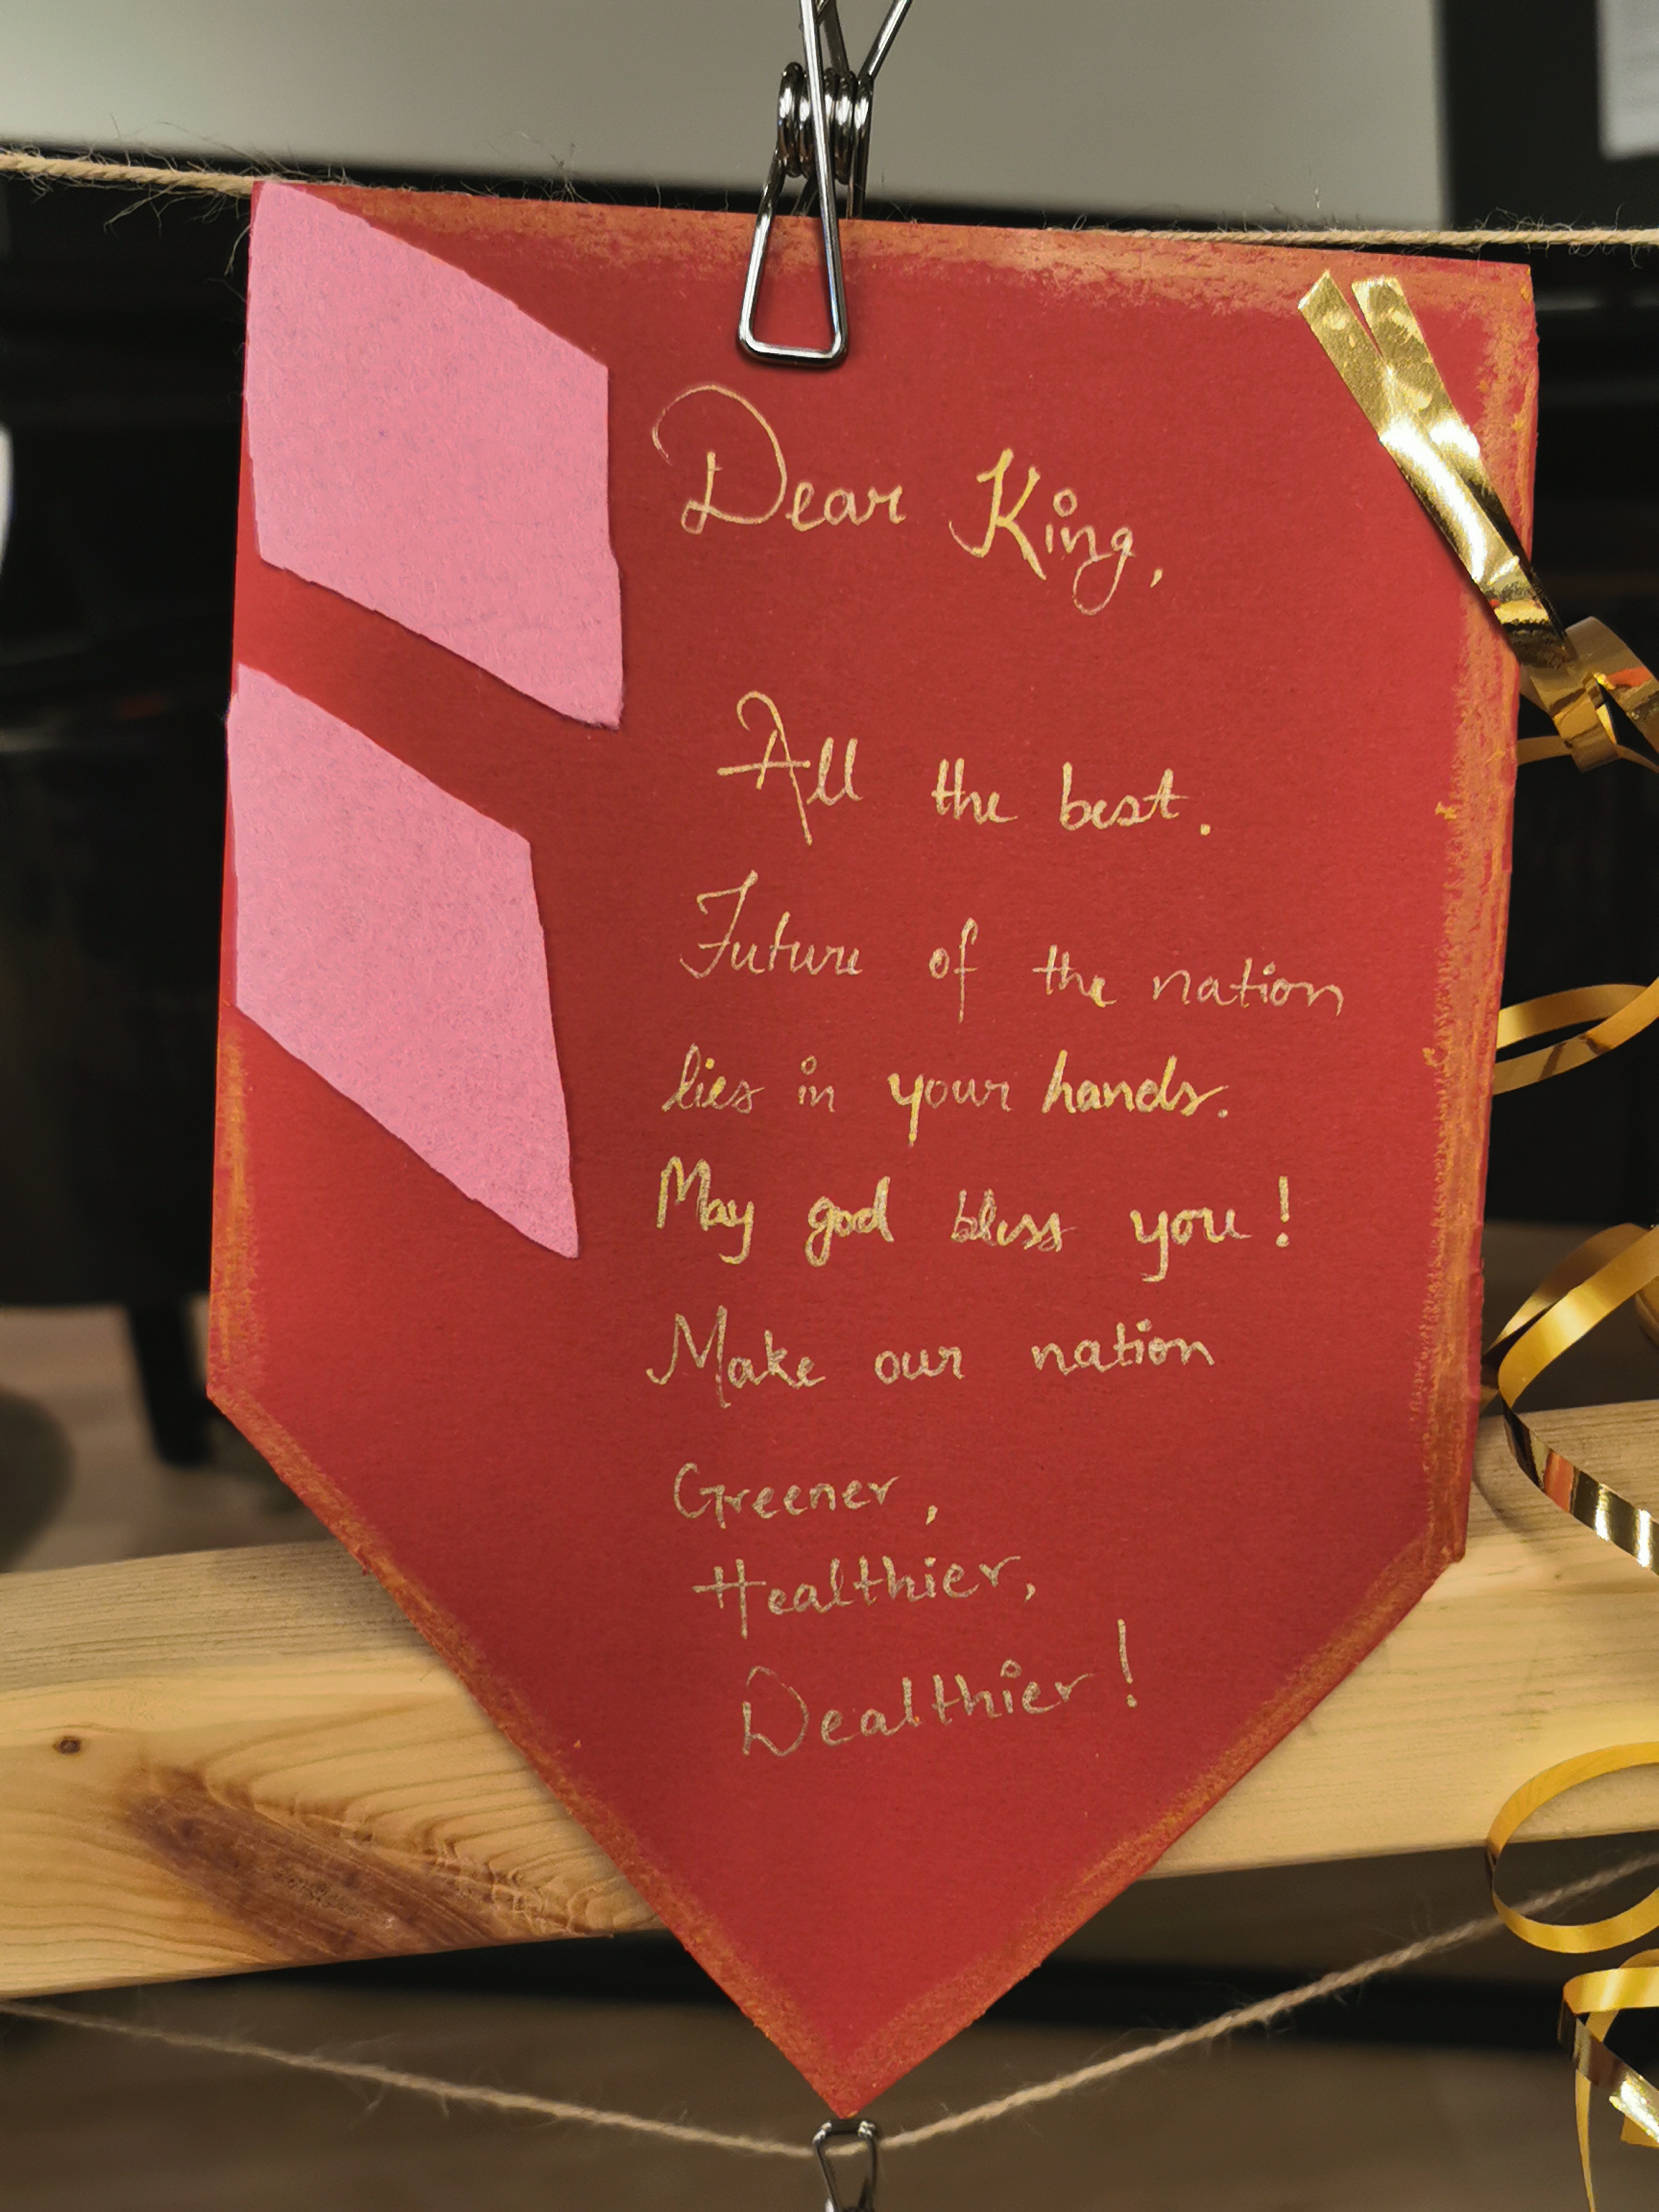 Dear King,
All the best.
Future of the nation
lies in your hands.
May god bless you!
Make our nation
Greener,
Healthier,
Dealthier!